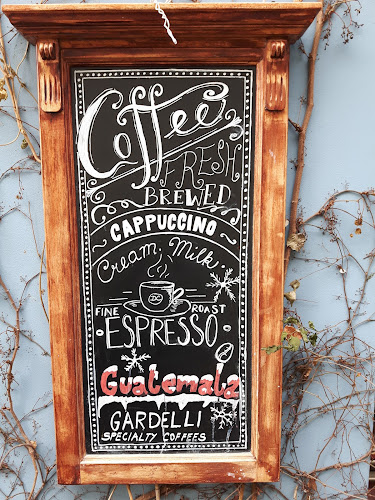 Coffee
FRESH
BREWED
CAPPUCCINO
Cream, Milk
FINE ROAST
ESPRESSO
Guatemala
GARDELLI
SPECIALTY COFFEES